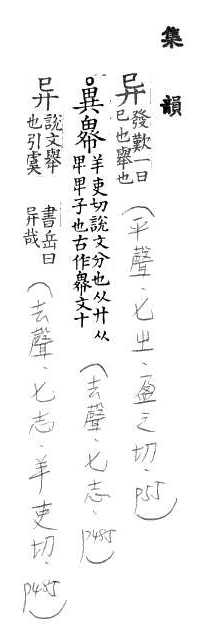 集韻
异 發歎一曰已也舉也 (平聲·七之·盈之切·P55)
異𢌿 羊吏切說文分也从廾从畀畀子也古作𢌿文十 (去聲·七志·P485)
异 說文舉也引虞書岳曰异哉 (去聲·七志·羊吏切·P485)